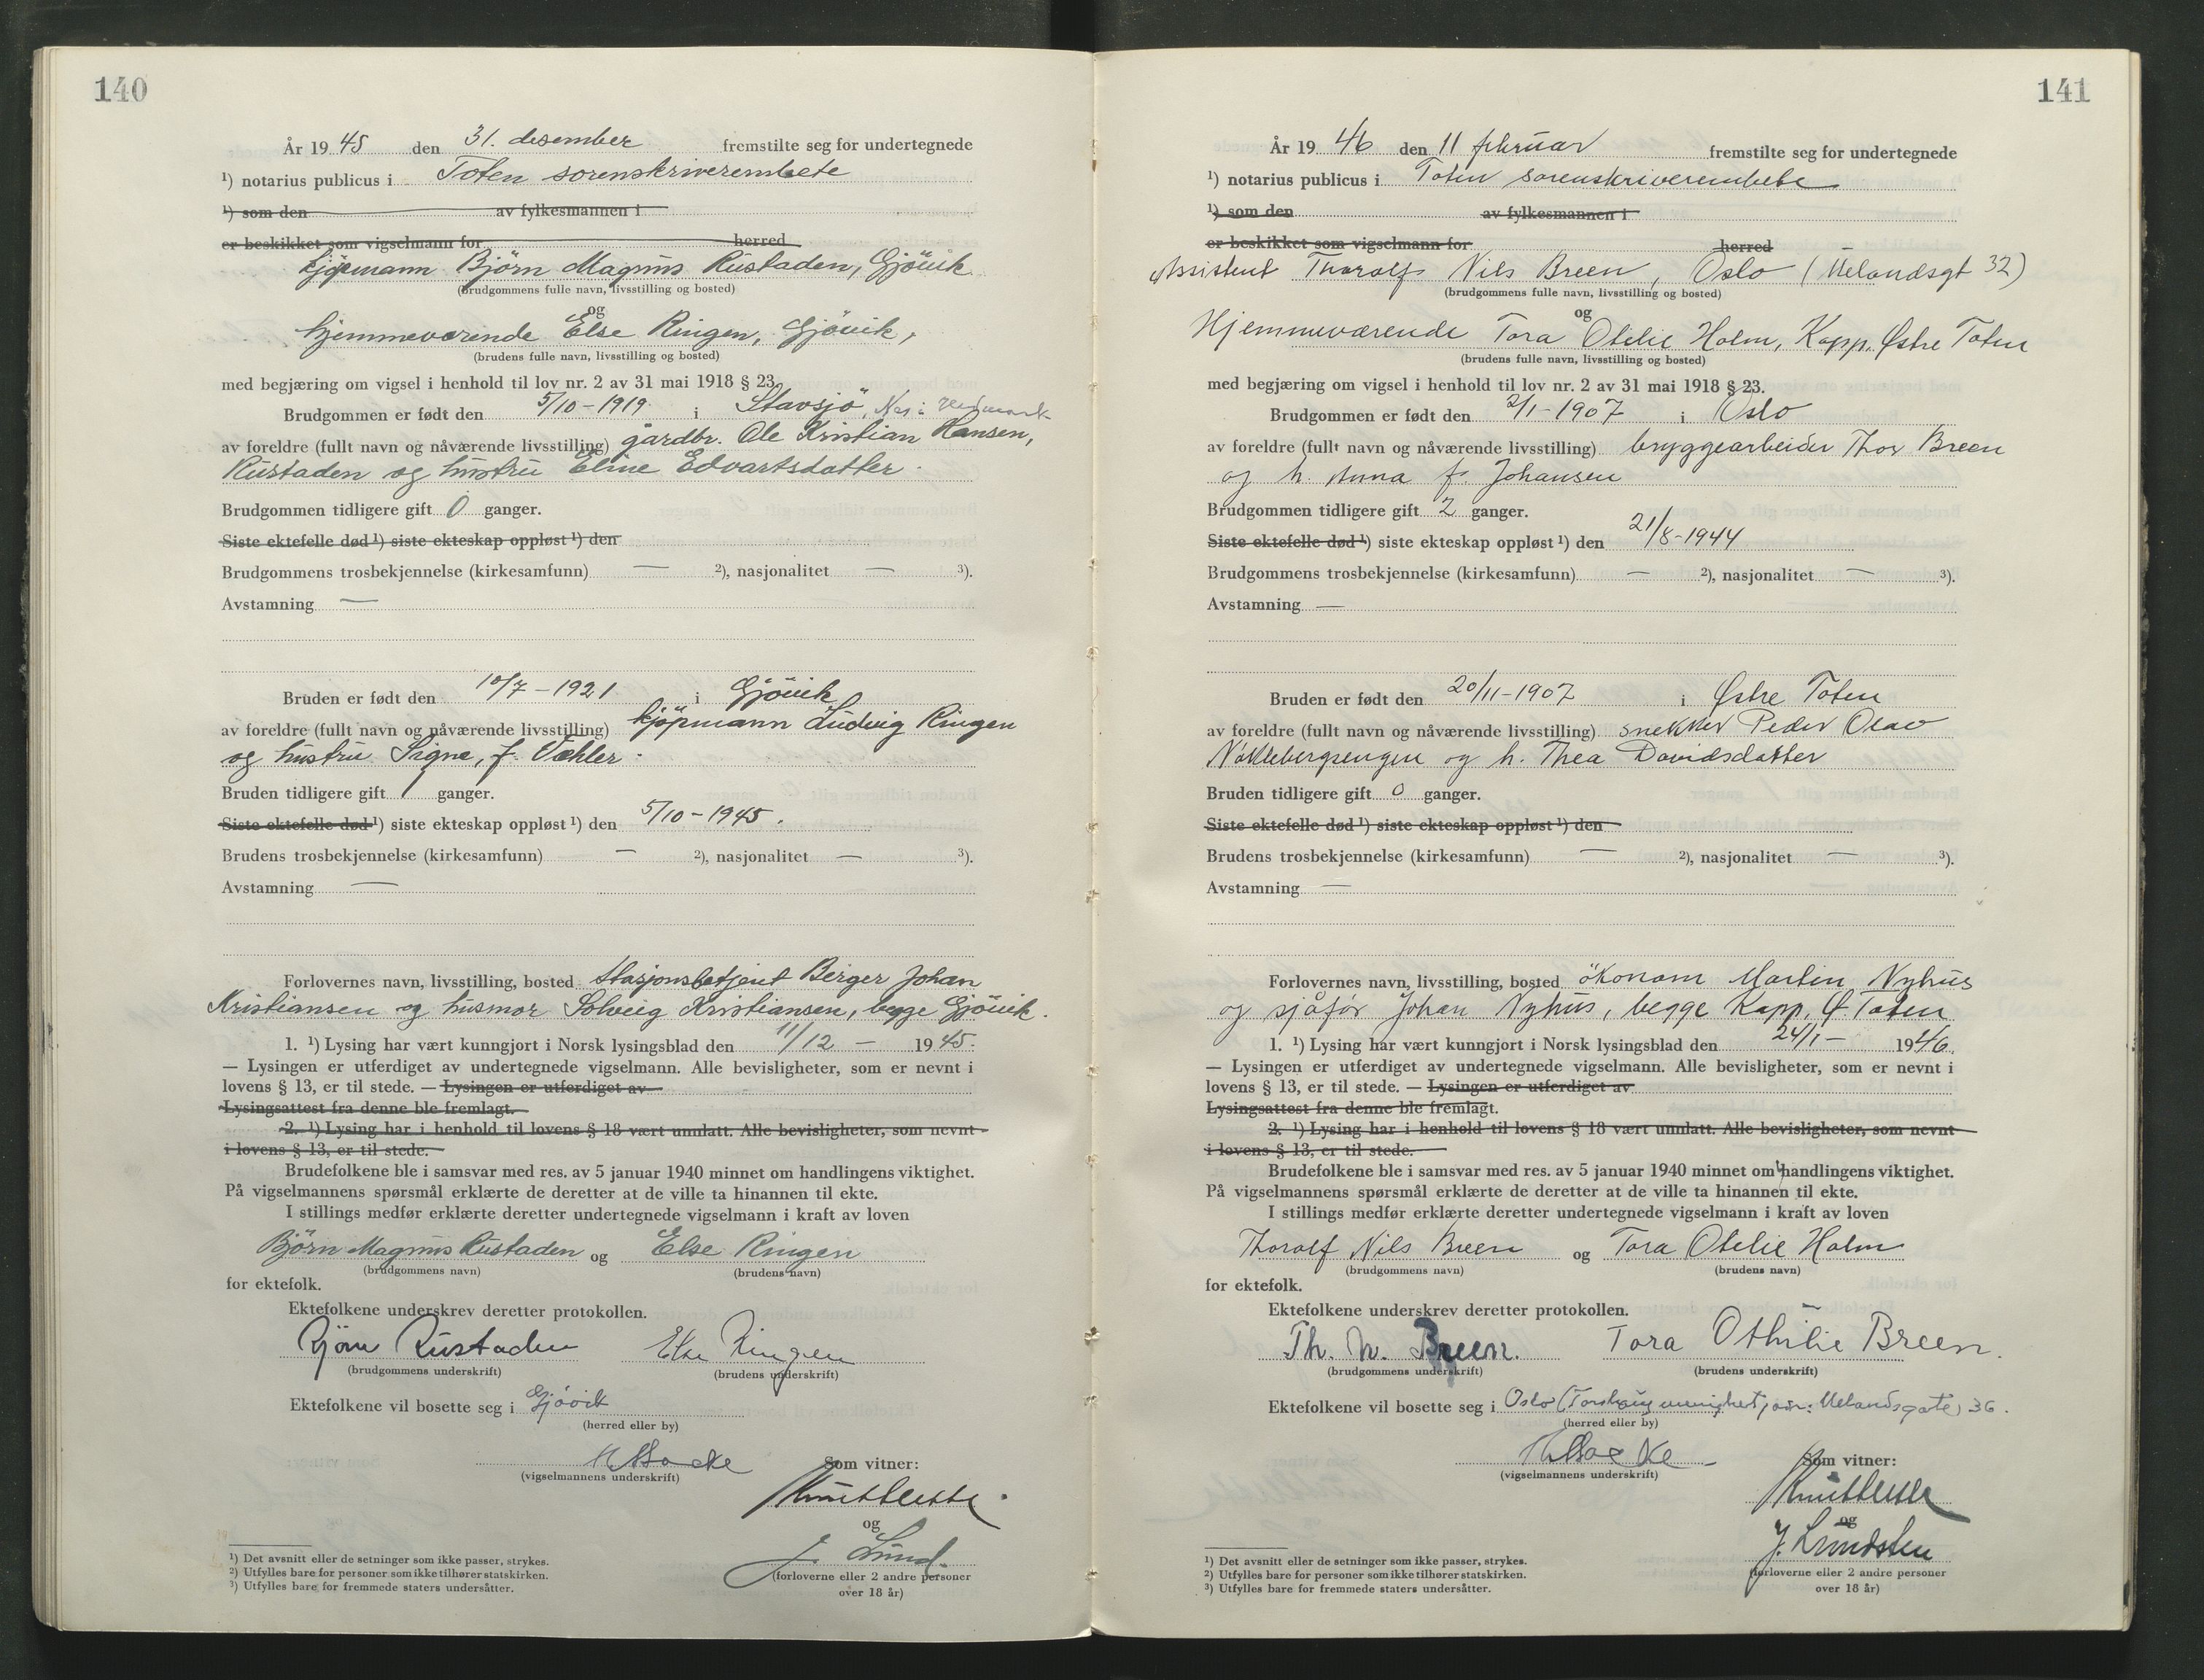 140
År 1945 den 31. desember fremstilte seg for undertegnede
¹) notarius publicus i Toten sorenskriverembete
¹) som den av fylkesmannen i
er beskikket som vigselmann for herred
kjøpmann Björn Magnus Rustaden, Gjövik
(brudgommens fulle navn, livsstilling og bosted)
og
hjemmeværende Else Ringen, Gjövik,
(brudens fulle navn, livsstilling og bosted)
med begjæring om vigsel i henhold til lov nr. 2 av 31 mai 1918 § 23.
Brudgommen er født den 5/10-1919 i Stavsjö, Nes i Hedmark
av foreldre (fullt navn og nåværende livsstilling) gardbr. Ole Kristian Hansen,
Rustaden og hustru Eline Edvartsdatter.
Brudgommen tidligere gift 0 ganger.
Siste ektefelle død ¹) siste ekteskap oppløst ¹) den
Brudgommens trosbekjennelse (kirkesamfunn) — ²), nasjonalitet — ³).
Avstamning —
Bruden er født den 10/7-1921 i Gjövik
av foreldre (fullt navn og nåværende livsstilling) kjöpmann Ludvig Ringen
og hustru Signe, f. Væhler.
Bruden tidligere gift 1 ganger.
Siste ektefelle død ¹) siste ekteskap oppløst ¹) den 5/10-1945.
Brudens trosbekjennelse (kirkesamfunn) — ²), nasjonalitet — ³).
Avstamning —
Forlovernes navn, livsstilling, bosted Stasjonsbetjent Berger Johan
Kristiansen og husmor Solveig Kristiansen, begge Gjövik.
1. ¹) Lysing har vært kunngjort i Norsk lysingsblad den 11/12 — 1945.
— Lysingen er utferdiget av undertegnede vigselmann. Alle bevisligheter, som er nevnt i
lovens § 13, er til stede. — Lysingen er utferdiget av
Lysingsattest fra denne ble fremlagt.
2. ¹) Lysing har i henhold til lovens § 18 vært unnlatt. Alle bevisligheter, som nevnt
i lovens § 13, er til stede.
Brudefolkene ble i samsvar med res. av 5 januar 1940 minnet om handlingens viktighet.
På vigselmannens spørsmål erklærte de deretter at de ville ta hinannen til ekte.
I stillings medfør erklærte deretter undertegnede vigselmann i kraft av loven
Björn Magnus Rustaden og Else Ringen
(brudgommens navn) (brudens navn)
for ektefolk.
Ektefolkene underskrev deretter protokollen.
Bjørn Rustaden Else Ringen
(brudgommens underskrift) (brudens underskrift)
Ektefolkene vil bosette seg i Gjövik
(herred eller by)
(vigselmannens underskrift)
Som vitner:
og
J. Lund.
(forloverne eller 2 andre personer
over 18 år)
¹) Det avsnitt eller de setninger som ikke passer, strykes.
²) Utfylles bare for personer som ikke tilhører statskirken.
³) Utfylles bare for fremmede staters undersåtter.
141
År 1946 den 11 februar fremstilte seg for undertegnede
¹) notarius publicus i Toten sorenskriverembete
¹) som den av fylkesmannen i
er beskikket som vigselmann for herred
Assistent Thoralf Nils Breen, Oslo (Uelandsgt 32)
(brudgommens fulle navn, livsstilling og bosted)
og
Hjemmeværende Tora Otelie Holm, Kapp, Østre Toten
(brudens fulle navn, livsstilling og bosted)
med begjæring om vigsel i henhold til lov nr. 2 av 31 mai 1918 § 23.
Brudgommen er født den 2/1-1907 i Oslo
av foreldre (fullt navn og nåværende livsstilling) bryggearbeider Thor Breen
og h. Anna f. Johansen
Brudgommen tidligere gift 2 ganger.
Siste ektefelle død ¹) siste ekteskap oppløst ¹) den 21/8-1944
Brudgommens trosbekjennelse (kirkesamfunn) — ²), nasjonalitet — ³).
Avstamning —
Bruden er født den 20/11-1907 i Østre Toten
av foreldre (fullt navn og nåværende livsstilling) snekker Peder Olav
Nøklebergsengen og h. Thea Davidsdatter
Bruden tidligere gift 0 ganger.
Siste ektefelle død ¹) siste ekteskap oppløst ¹) den
Brudens trosbekjennelse (kirkesamfunn) — ²), nasjonalitet — ³).
Avstamning —
Forlovernes navn, livsstilling, bosted ökonom Martin Nyhus
og sjåför Johan Nyhus, begge Kapp, Ø. Toten
1. ¹) Lysing har vært kunngjort i Norsk lysingsblad den 24/1 — 1946.
— Lysingen er utferdiget av undertegnede vigselmann. Alle bevisligheter, som er nevnt i
lovens § 13, er til stede. — Lysingen er utferdiget av
Lysingsattest fra denne ble fremlagt.
2. ¹) Lysing har i henhold til lovens § 18 vært unnlatt. Alle bevisligheter, som nevnt
i lovens § 13, er til stede.
Brudefolkene ble i samsvar med res. av 5 januar 1940 minnet om handlingens viktighet.
På vigselmannens spørsmål erklærte de deretter at de ville ta hinannen til ekte.
I stillings medfør erklærte deretter undertegnede vigselmann i kraft av loven
Thoralf Nils Breen og Tora Otelie Holm
(brudgommens navn) (brudens navn)
for ektefolk.
Ektefolkene underskrev deretter protokollen.
Th. N. Breen. Tora Othilie Breen.
(brudgommens underskrift) (brudens underskrift)
Ektefolkene vil bosette seg i Oslo (Torshaug menighet, adr: Uelandsgate) 36.
(herred eller by)
(vigselmannens underskrift)
Som vitner:
og
J. Lundsten
(forloverne eller 2 andre personer
over 18 år)
¹) Det avsnitt eller de setninger som ikke passer, strykes.
²) Utfylles bare for personer som ikke tilhører statskirken.
³) Utfylles bare for fremmede staters undersåtter.